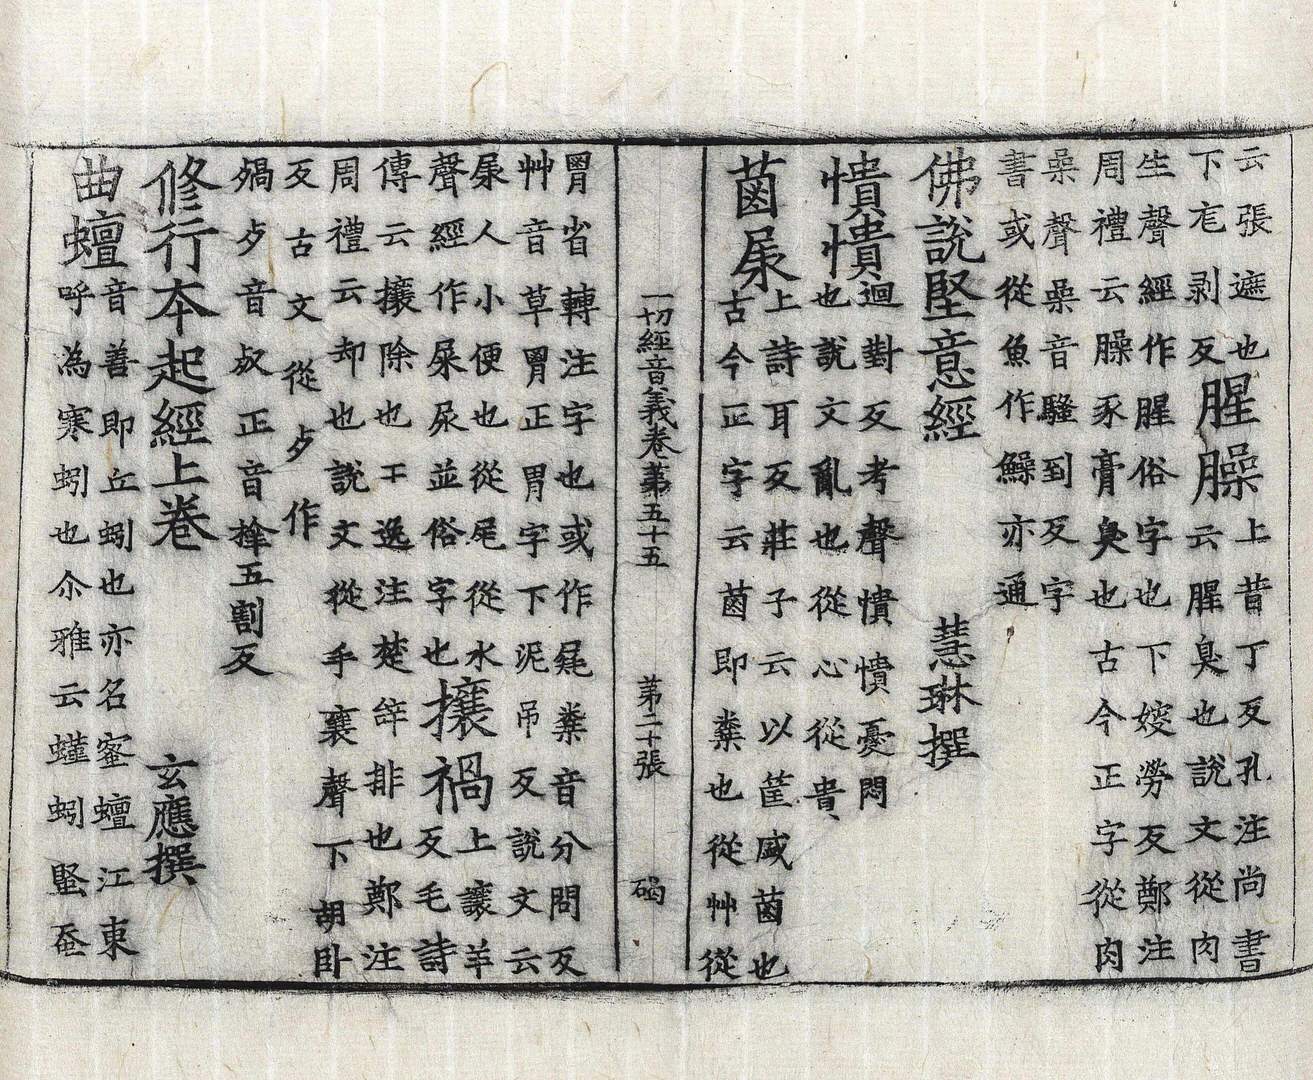 云張遮也
下㡯剥反
腥臊
上昔丁反孔注尚書
云腥臭也說文從肉
生聲經作腥俗字也下嫂勞反鄭注
周禮云臊豕膏臭也古今正字從肉
喿聲喿音騷到反字
書或從魚作鱢亦通
佛說堅意經 慧琳撰
憒憒
迴對反考聲憒憒憂悶
也說文亂也從心從貴
菌屎
上詩耳反莊子云以筐盛菌也
古今正字云菌即糞也從艸從
一切經音義卷第五十五 第二十張 碣
胃省轉注字也或作糞音分問反
艸音草胃正胃字下泥吊反說文云
尿人小便也從尾從水
聲經作屎尿並俗字也
攘禍
上讓羊
反毛詩
傳云攘除也王逸注楚辝排也鄭注
周禮云却也說文從手襄聲下胡卧
反古文從歺作
歺音叔正音五割反
修行本起經上卷 玄應撰
曲蟺
音善即丘蚓也亦名蜜蟺江東
呼為寒蚓也尒雅云螼蚓蚕